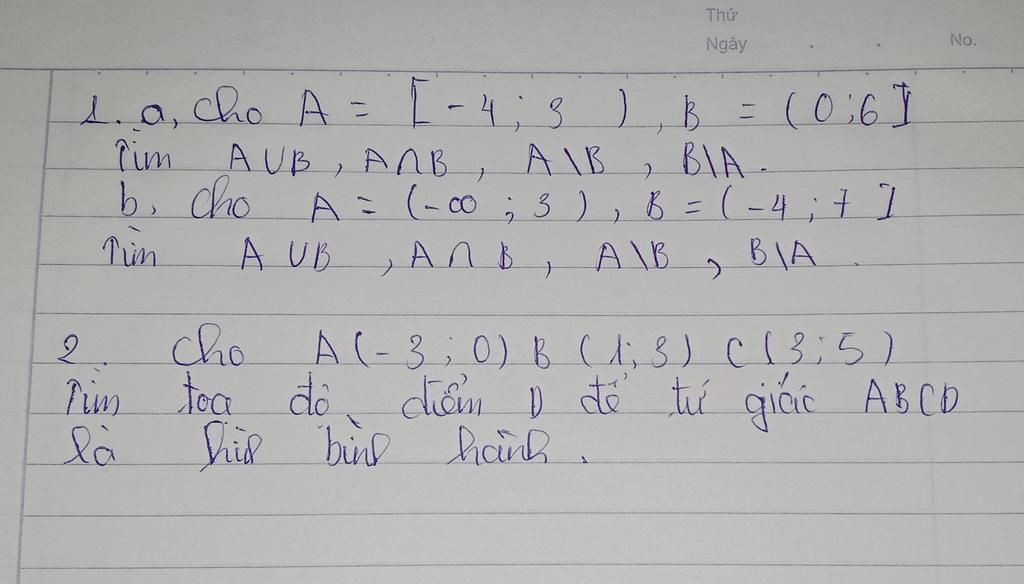 Thứ
Ngày . . No.
1. a, Cho A = [-4; 3 ), B = (0;6]
Tìm A∪B, A∩B, A\B, B\A.
b, Cho A = (-∞ ; 3 ), B = (-4 ; 7 ]
Tìm A∪B, A∩B, A\B, B\A.
2. Cho A(-3;0) B (1;3) C(3;5)
Tìm tọa độ điểm D để tứ giác ABCD
là hìn bình hành.